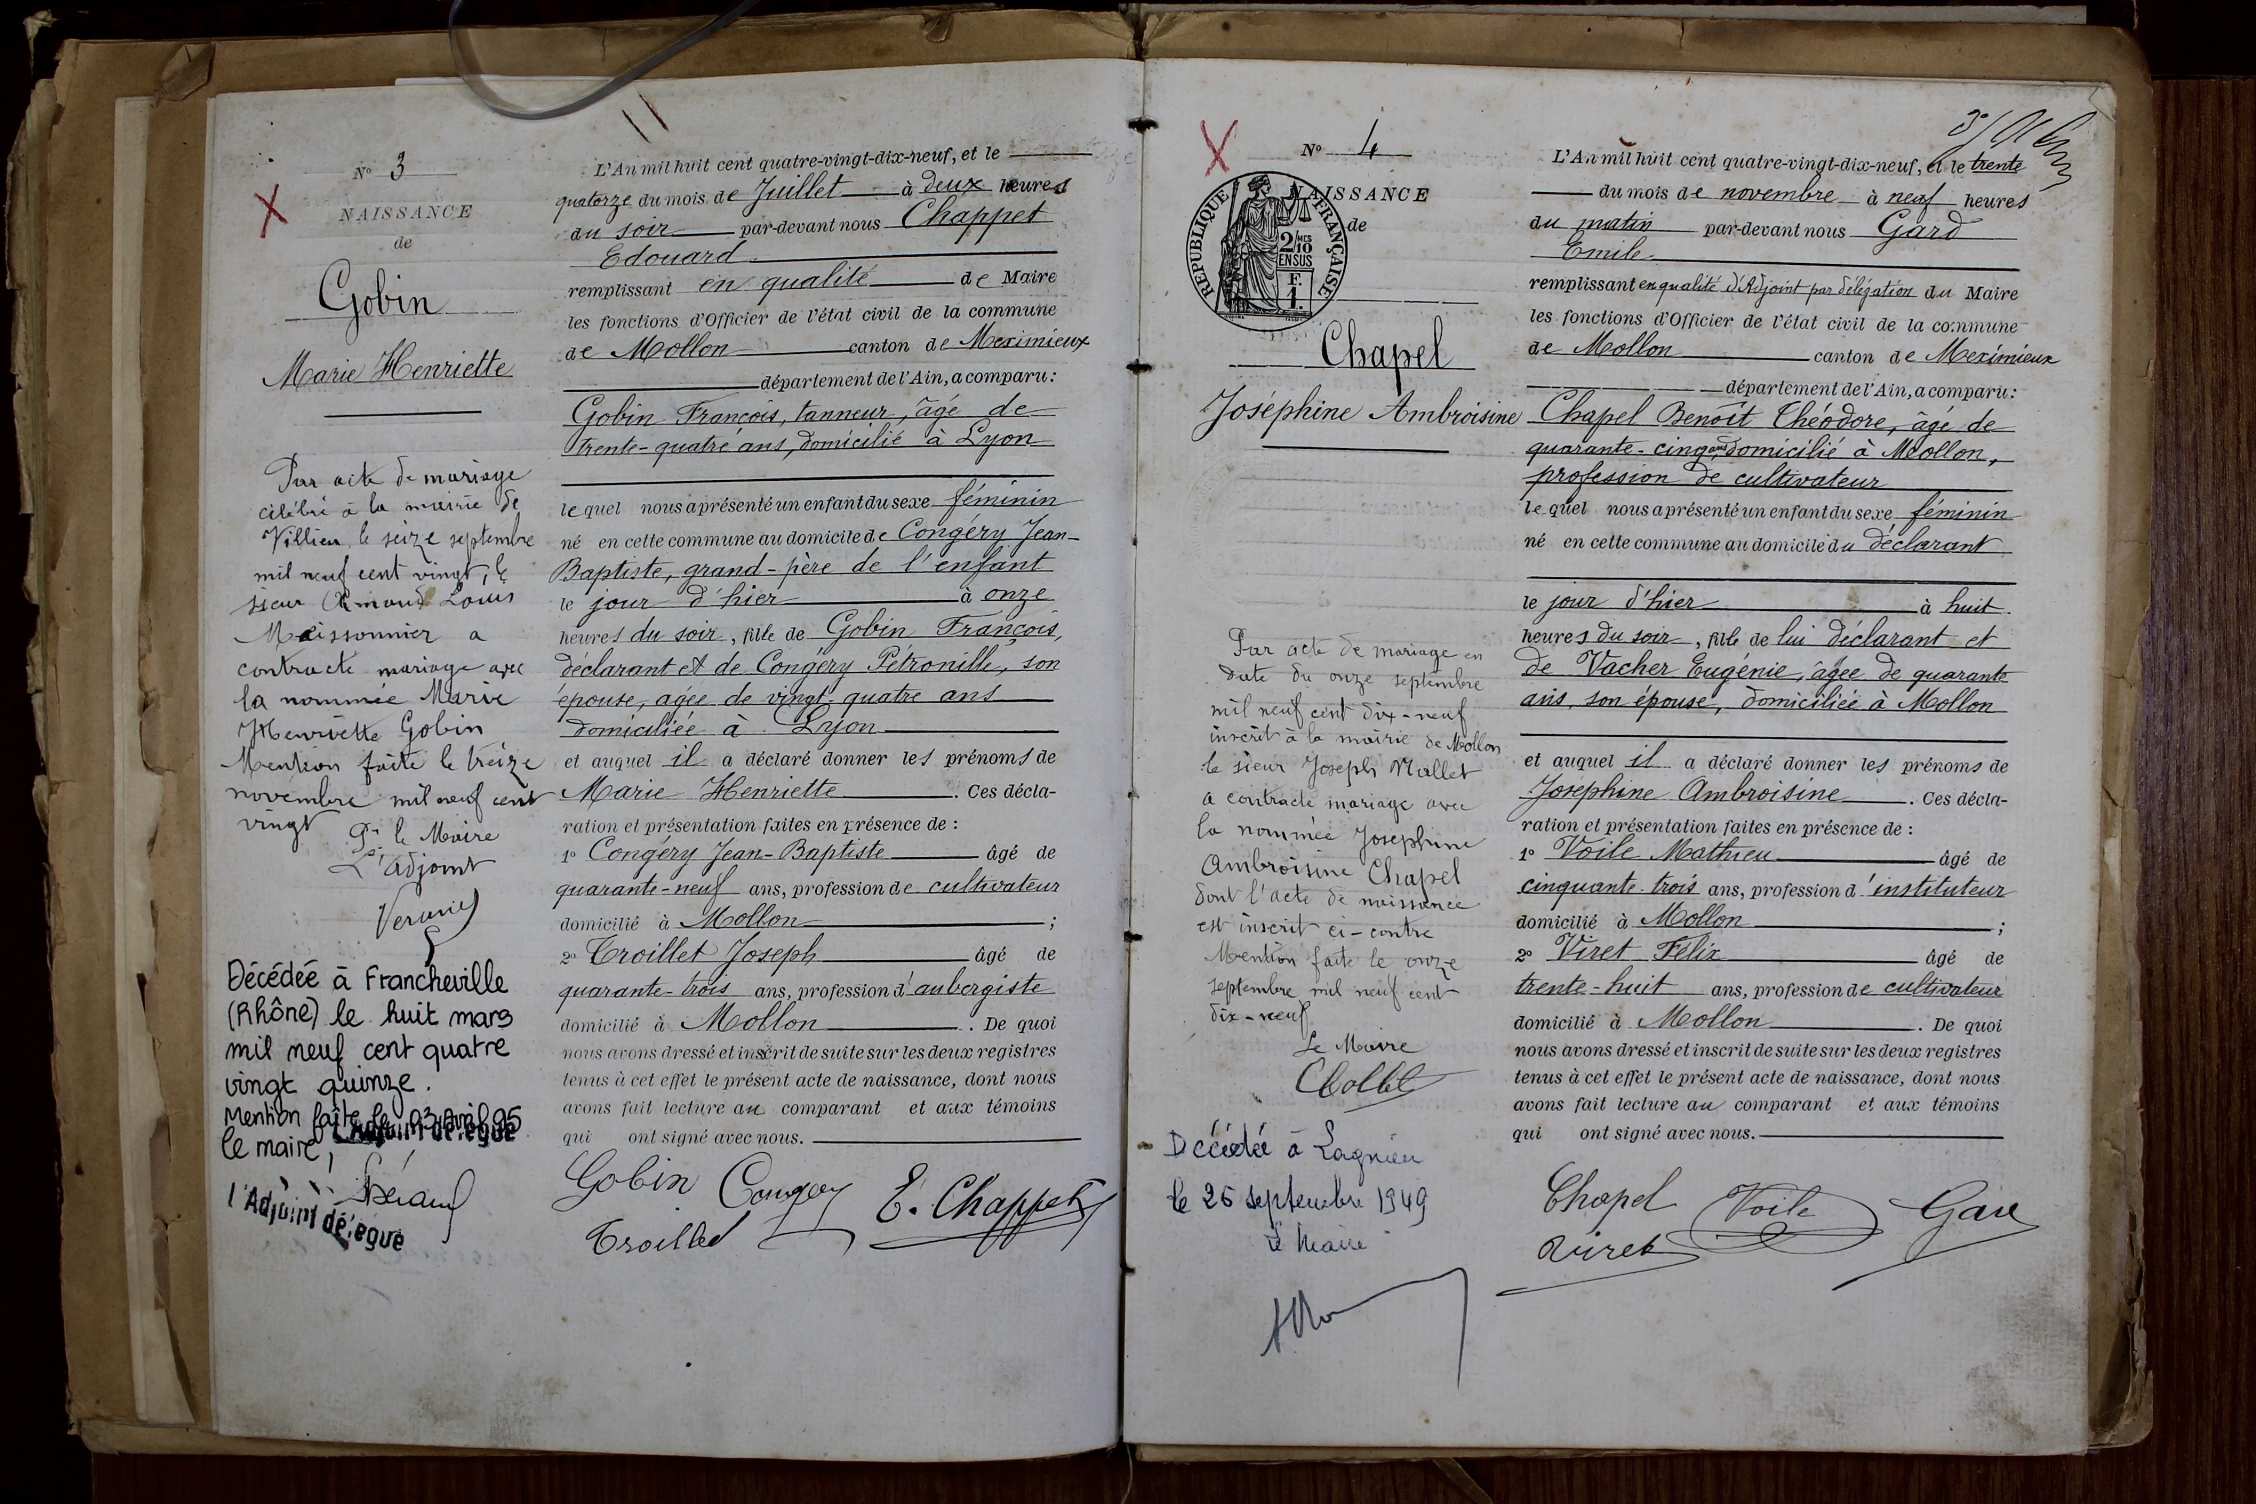 N° 3
NAISSANCE
de
Gobin
Marie Henriette
Par acte de mariage
célébré à la mairie de
Villieu le seize septembre
mil neuf cent vingt, le
sieur Armand Louis
Meissonnier a
contracté mariage avec
la nommée Marie
Henriette Gobin
Mention faite le treize
novembre mil neuf cent
vingt
Pr le Maire
L'adjoint
Décédée à Francheville
(Rhône) le huit mars
mil neuf cent quatre
vingt quinze.
Mention faite le 03 avril 95
le maire,
l'Adjoint délégué
L'An mil huit cent quatre-vingt-dix-neuf, et le
quatorze du mois de Juillet à deux heures
du soir par-devant nous Chappet
Edouard
remplissant en qualité de Maire
les fonctions d'Officier de l'état civil de la commune
de Mollon canton de Meximieux
département de l'Ain, a comparu:
Gobin François, tanneur, âgé de
trente-quatre ans, domicilié à Lyon
lequel nous a présenté un enfant du sexe féminin
né en cette commune au domicile de Congéry Jean-
Baptiste, grand-père de l'enfant
le jour d'hier à onze
heures du soir, fille de Gobin François,
déclarant et de Congéry Pétronille, son
épouse, agée de vingt-quatre ans
domiciliée à Lyon
et auquel il a déclaré donner les prénoms de
Marie Henriette. Ces décla-
ration et présentation faites en présence de :
1° Congéry Jean-Baptiste âgé de
quarante-neuf ans, profession de cultivateur
domicilié à Mollon ;
2° Troillet Joseph âgé de
quarante-trois ans, profession d'aubergiste
domicilié à Mollon. De quoi
nous avons dressé et inscrit de suite sur les deux registres
tenus à cet effet le présent acte de naissance, dont nous
avons fait lecture au comparant et aux témoins
qui ont signé avec nous.
Gobin Congery E. Chappet
Troillet
N° 4
NAISSANCE
de
RÉPUBLIQUE FRANÇAISE
2/10 MES
EN SUS
F.
1.
Chapel
Joséphine Ambroisine
Par acte de mariage en
date du onze septembre
mil neuf cent dix-neuf
inscrit à la mairie de Mollon
le sieur Joseph Mallet
a contracté mariage avec
la nommée Josephine
Ambroisine Chapel
dont l'acte de naissance
est inscrit ci-contre
Mention faite le onze
septembre mil neuf cent
dix-neuf
Le Maire
Décédée à Lagnieu
le 26 septembre 1949
Le Maire
L'An mil huit cent quatre-vingt-dix-neuf, et le trente
du mois de novembre à neuf heures
du matin par-devant nous Gard
Emile
remplissant en qualité d'Adjoint par délégation du Maire
les fonctions d'Officier de l'état civil de la commune
de Mollon canton de Meximieux
département de l'Ain, a comparu:
Chapel Benoît Théodore, âgé de
quarante-cinq ans, domicilié à Mollon,
profession de cultivateur
lequel nous a présenté un enfant du sexe féminin
né en cette commune au domicile du déclarant
le jour d'hier à huit
heures du soir, fille de lui déclarant et
de Vacher Eugénie, âgée de quarante
ans, son épouse, domiciliée à Mollon
et auquel il a déclaré donner les prénoms de
Joséphine Ambroisine. Ces décla-
ration et présentation faites en présence de :
1° Voile Mathieu âgé de
cinquante-trois ans, profession d'instituteur
domicilié à Mollon ;
2° Viret Félix âgé de
trente-huit ans, profession de cultivateur
domicilié à Mollon. De quoi
nous avons dressé et inscrit de suite sur les deux registres
tenus à cet effet le présent acte de naissance, dont nous
avons fait lecture au comparant et aux témoins
qui ont signé avec nous.
Chapel Voile Gard
Viret